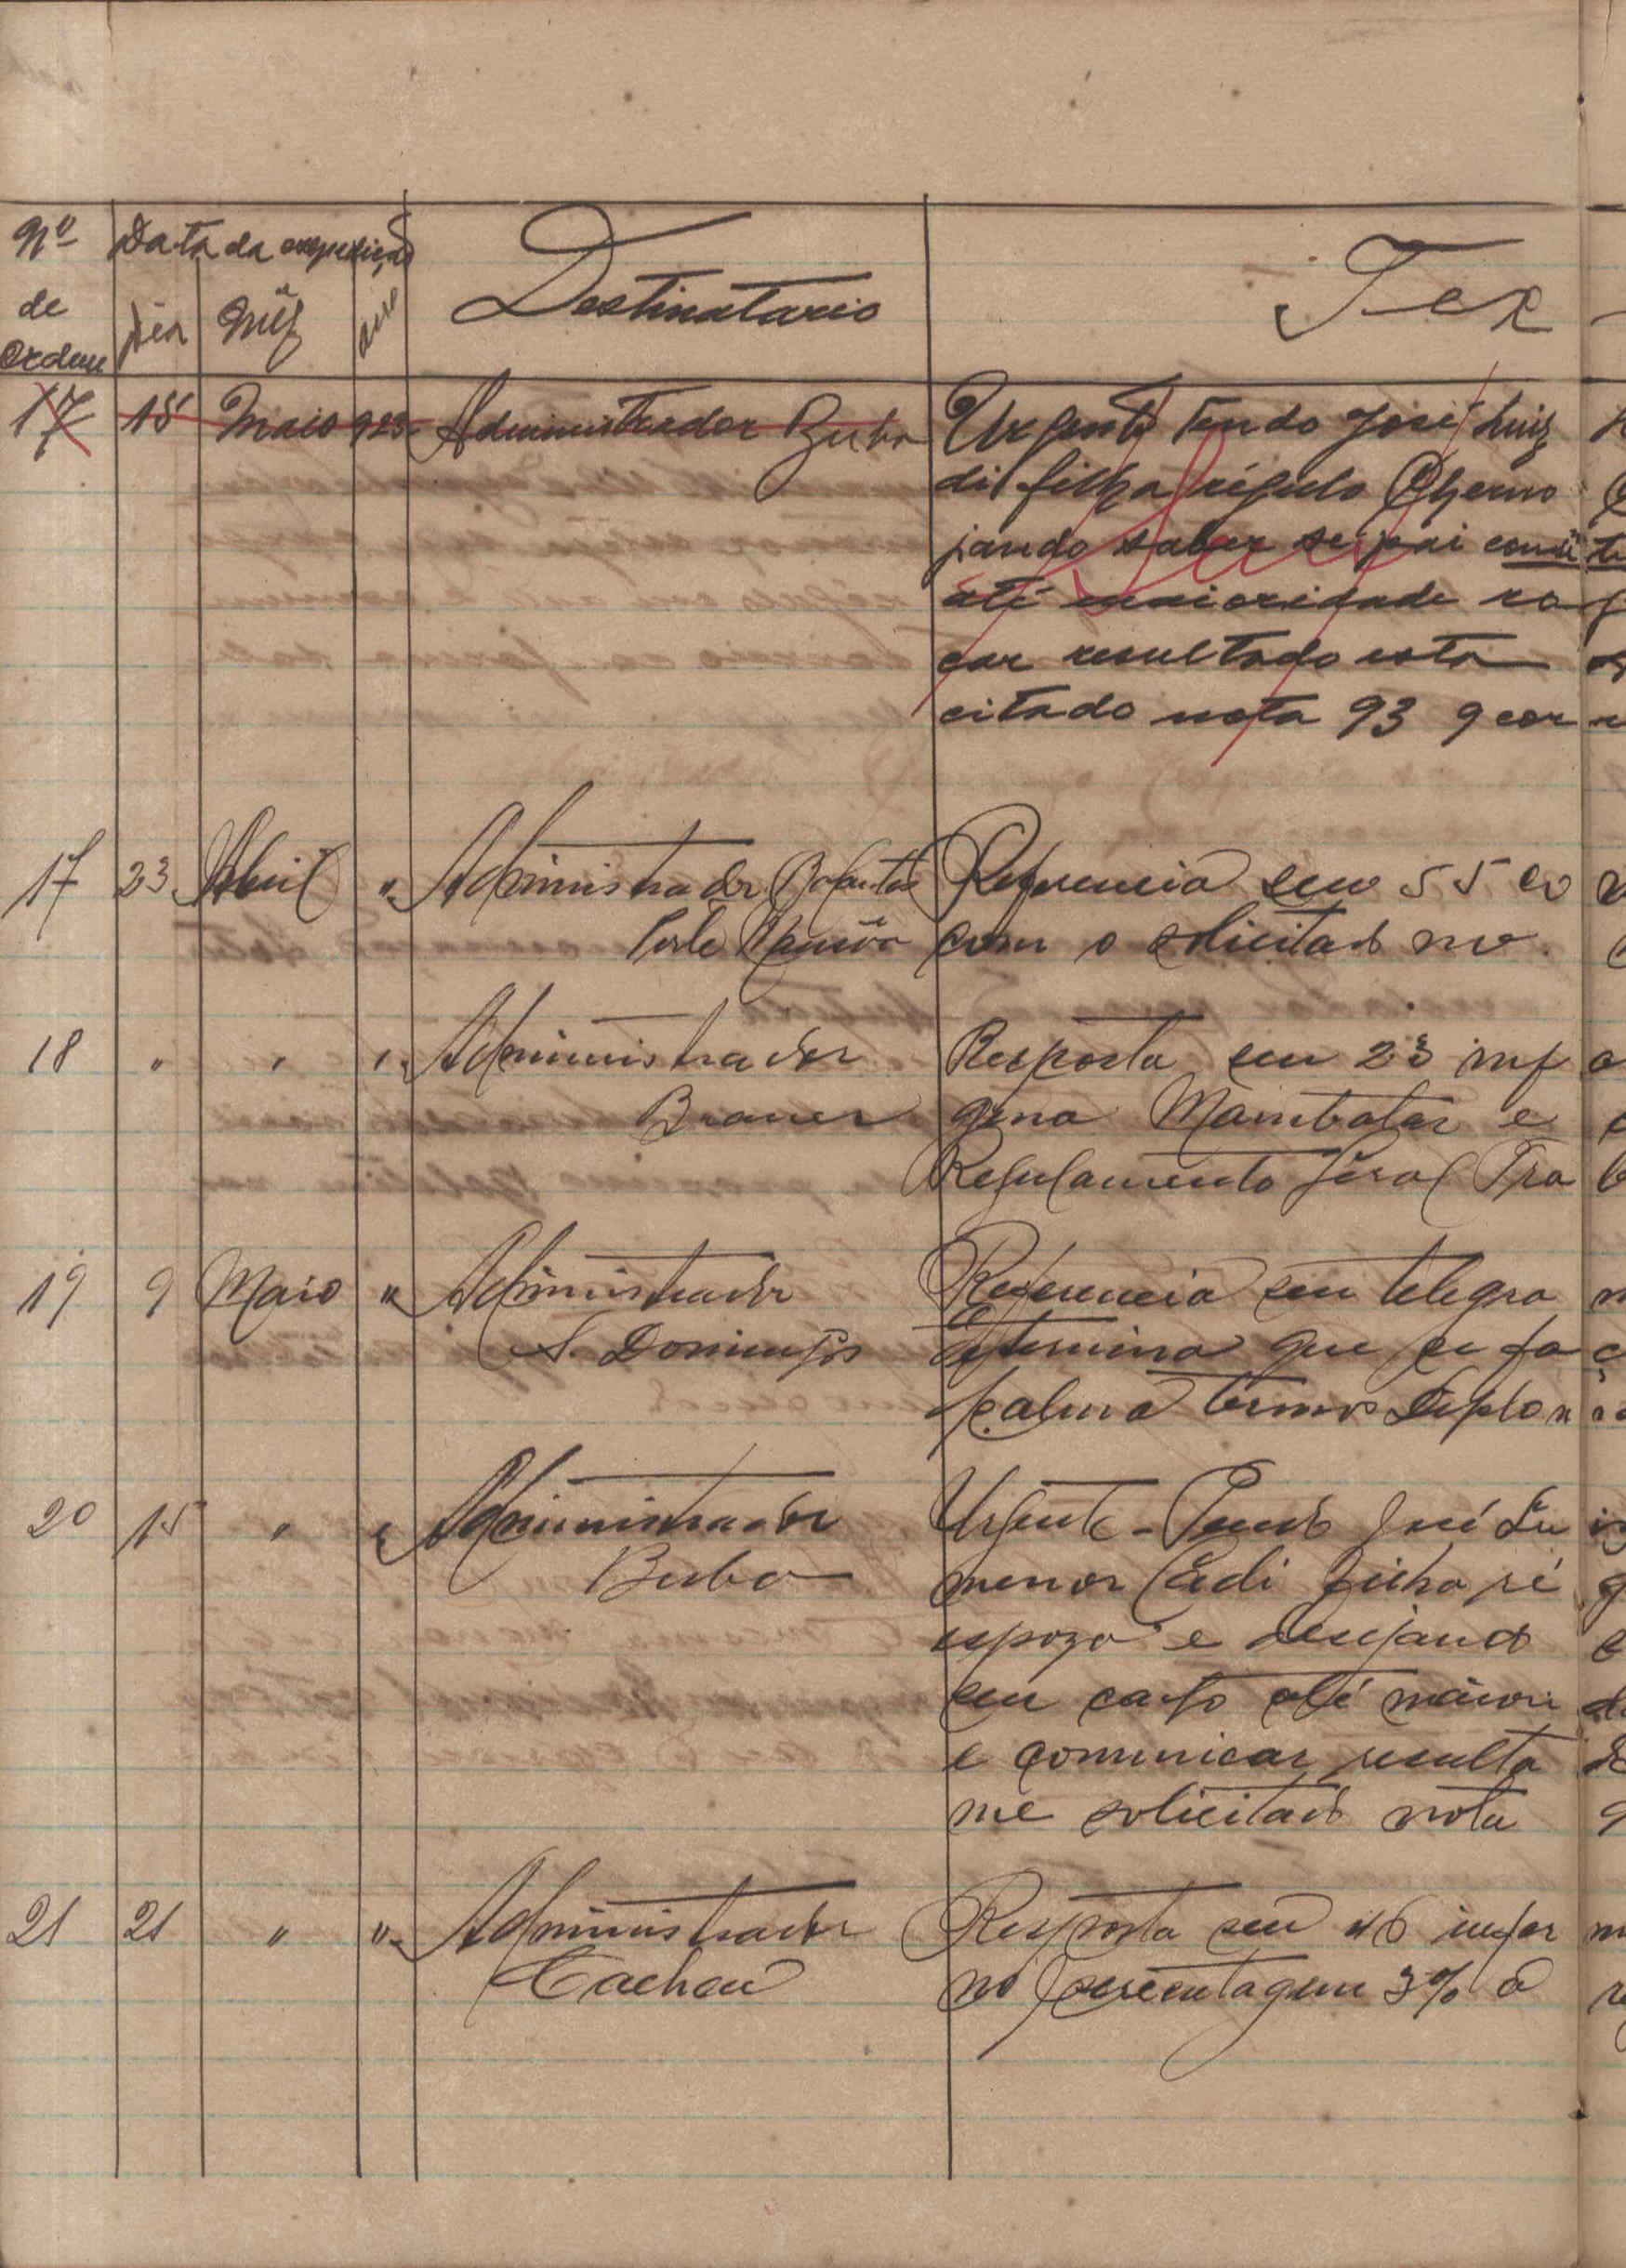 Nº Data da expedição Destinatario Tex
de dia Mês ano
Ordem
17 15 Maio 923 Administrador Buba Urgente Tendo José Luiz
di filha régulo Cherno
jando saber se pai consi te
até maioridade ro
car resultado esta
citado nota 93 9 cor
17 23 Abril " Administrador Referencia seu 55
com o solicitado no
18 " " " Administrador Resposta seu 23 inf o
Brames gena Mambatar e
Regulamento Geral Tra b
19 9 Maio " Administrador Referencia seu telegra m
S. Domingos determina que se fa ç
palma termos Diplom
20 15 " " Administrador Urgente - Tendo José Lu is
Buba menor Cadi filha ré g
espoza e desejando
seu cargo até maiori d
e comunicar resulta do
me solicitado nota 9
21 21 " " Administrador Resposta seu 46 infor m
Cacheu no percentagem 3% a